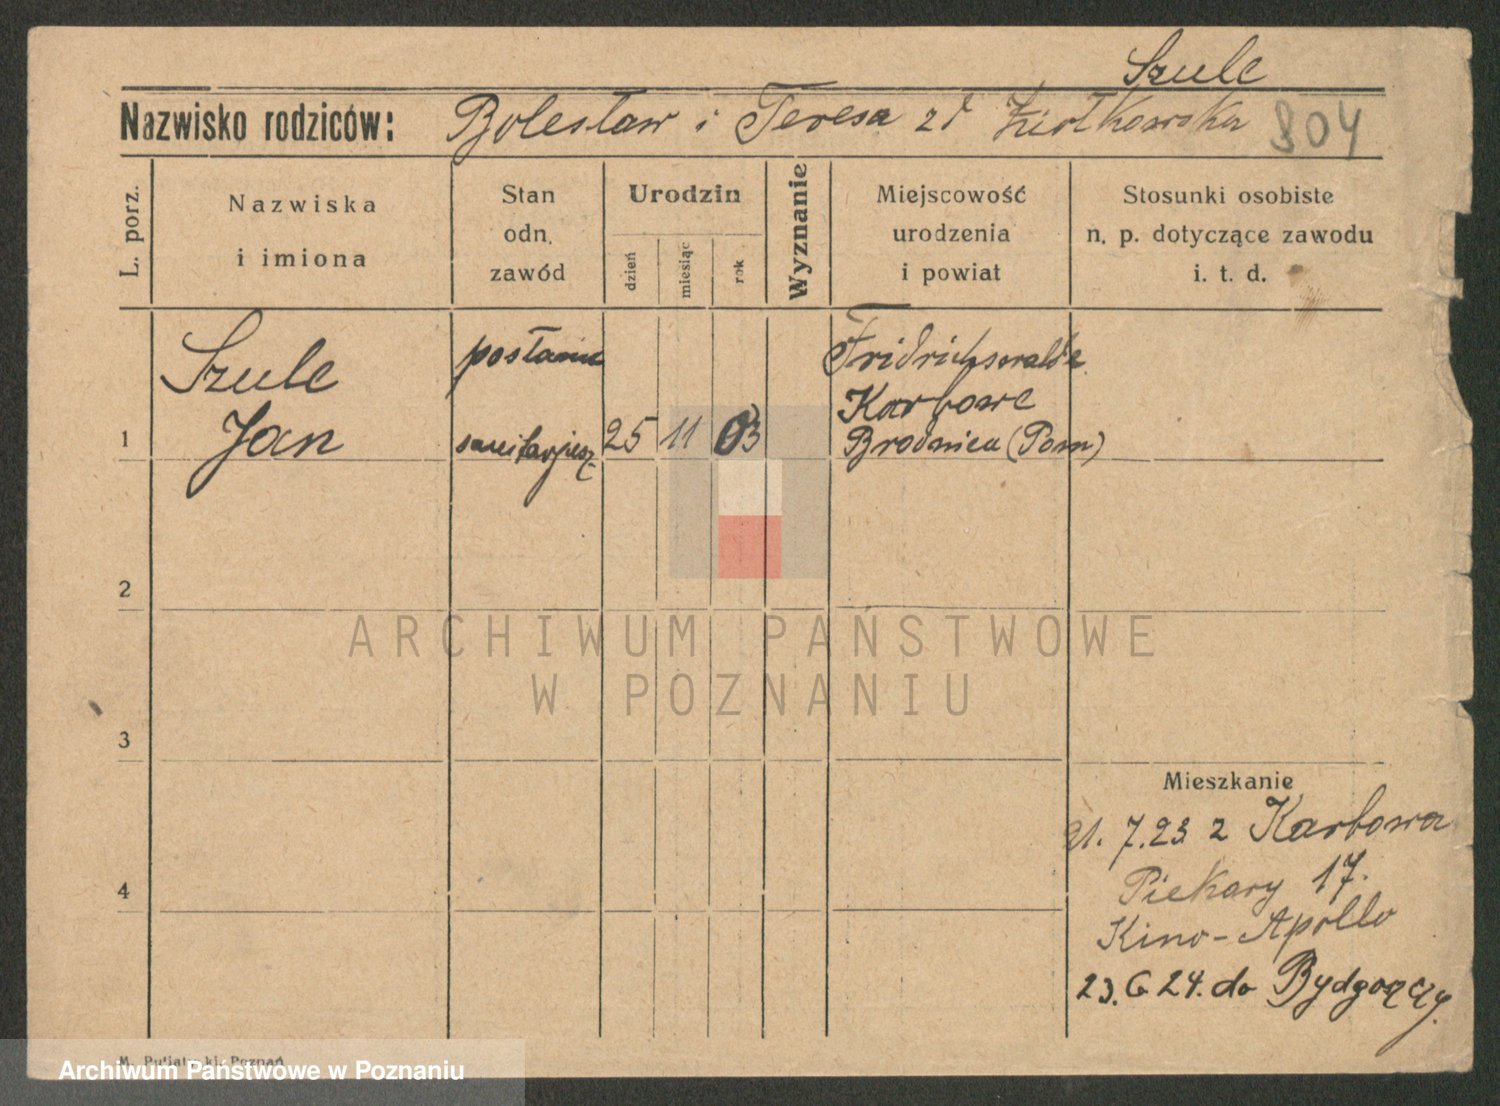 Szulc
Nazwisko rodziców: Bolesław i Teresa zd Ziółkowska 804
L. porz.
Nazwiska
i imiona
Stan
odn.
zawód
Urodzin
dzień
miesiąc
rok
Wyznanie
Miejscowość
urodzenia
i powiat
Stosunki osobiste
n. p. dotyczące zawodu
i. t. d.
Szulc
Jan
25 11 03
Fridrichswalde
Karbowe
Brodnica (Pom)
1
2
ARCHIWUM PAŃSTWOWE
W POZNANIU
3
Mieszkanie
21. 7.23 z Karbowa
4
Piekary 17.
Kino-Apollo
23. 6 24. do Bydgoszczy.
Poznań
Archiwum Państwowe w Poznaniu